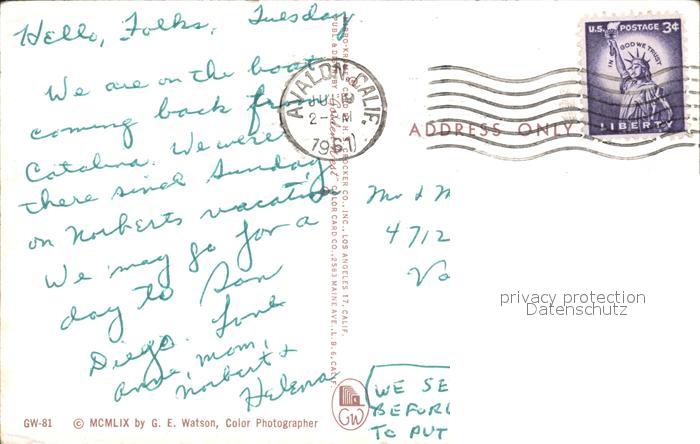 Hello, Folks, Tuesday
We are on the boat
coming back from
Catalina. We were
there since Sunday
on Norberts vacation
We may go for a
day to San
Diego. Love
Anna, Mom,
Norbert &
Helena
GW-81 © MCMLIX by G. E. Watson, Color Photographer
COLOR CARD CO., 2583 MAINE AVE., L. B. 6, CALIF.
CROCKER CO., INC., LOS ANGELES 17, CALIF.
GW
AVALON CALIF.
2-PM
1961
U.S. POSTAGE 3¢
IN GOD WE TRUST
LIBERTY
ADDRESS ONLY
Mr & M
4712
Va
privacy protection
Datenschutz
WE SE
BEFOR
TO PUT